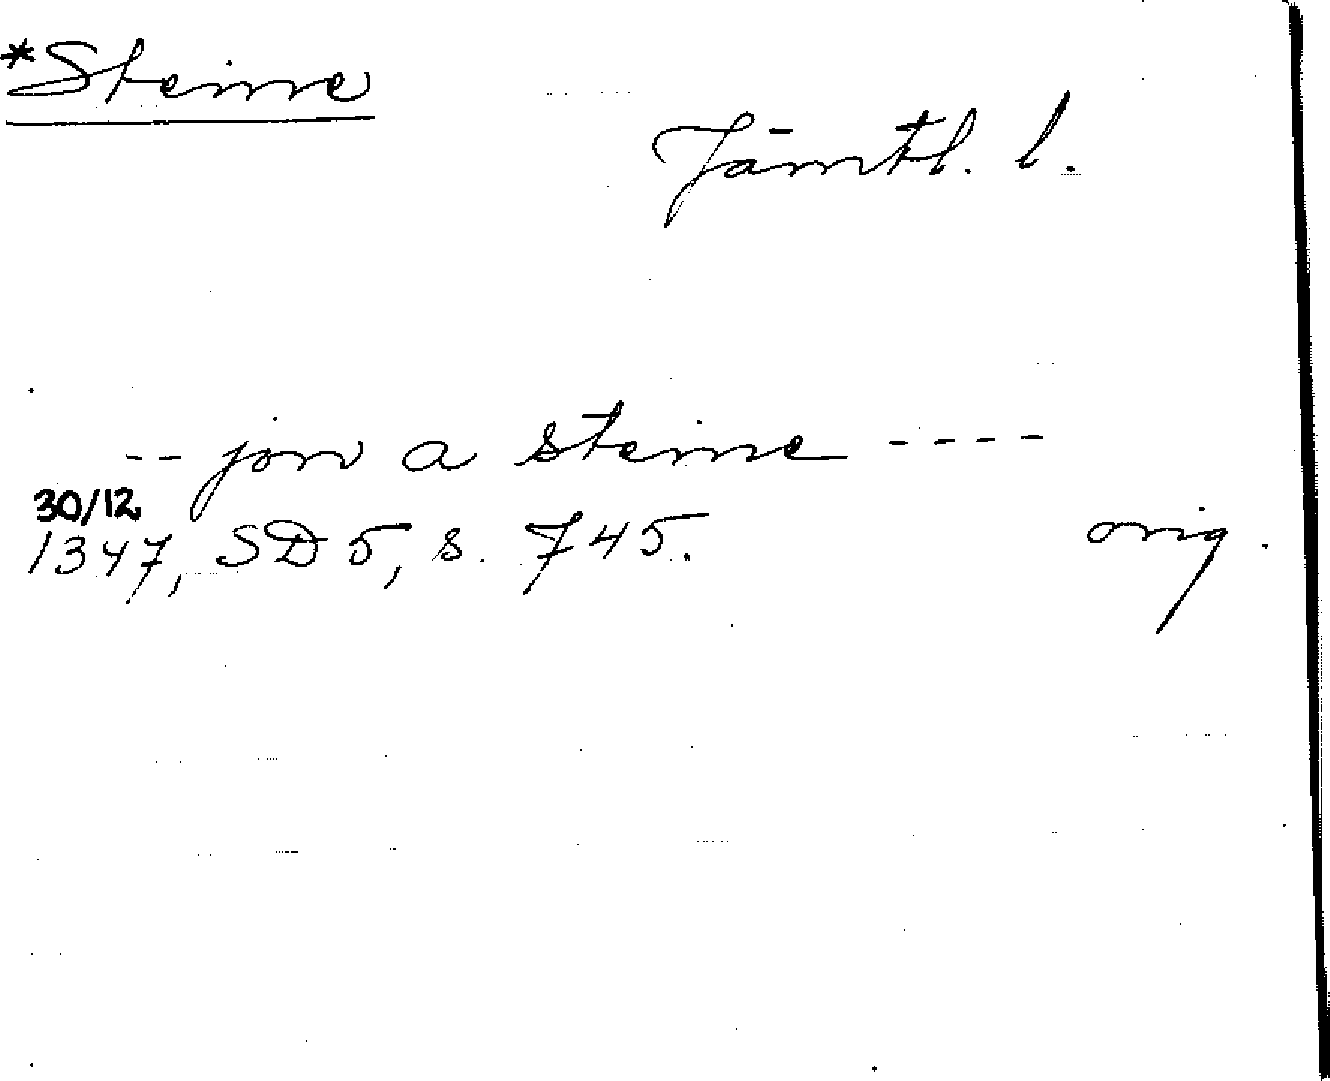 *Steine
Jämtl. l.
-- jon a steine ----
30/12
1347, SD 5, s. 745. orig.